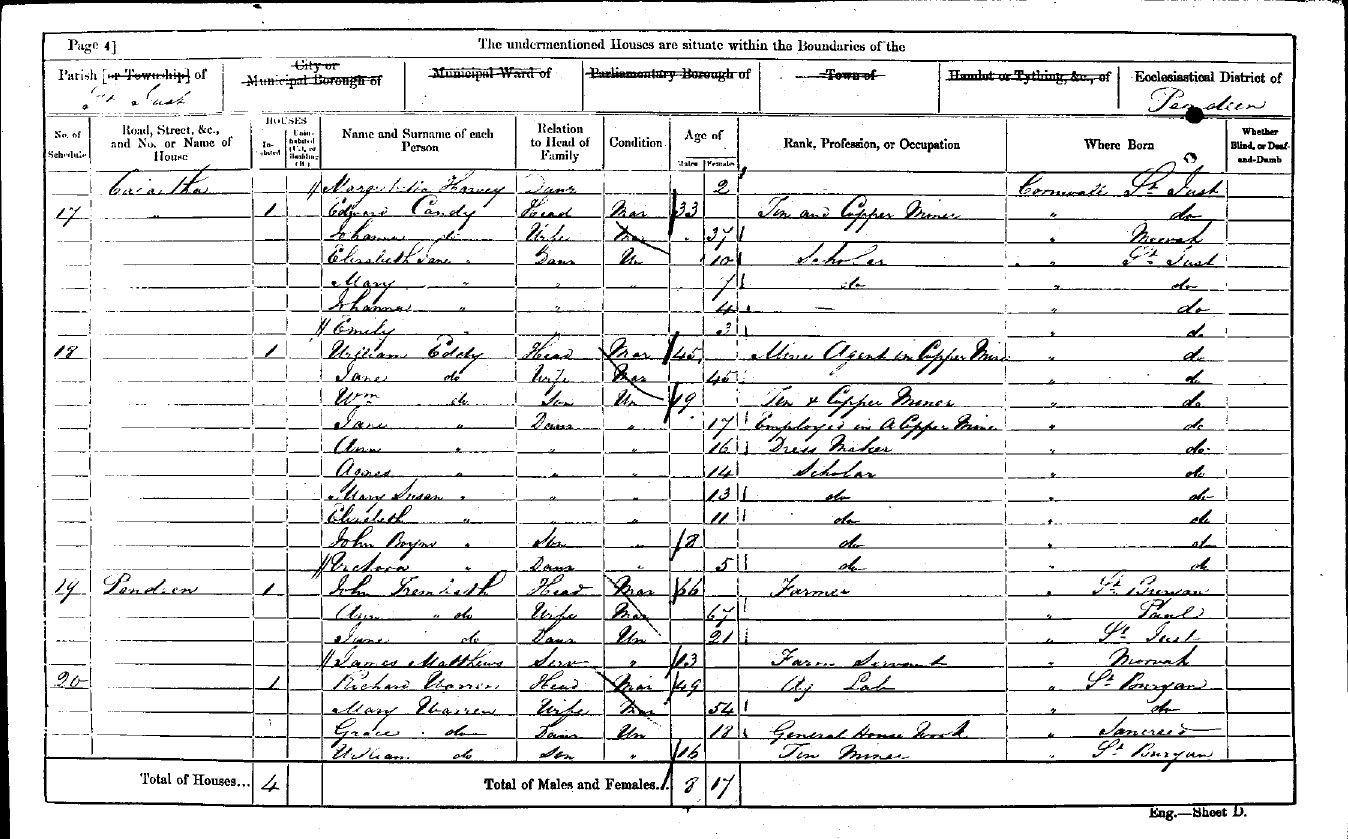 Page 4] The undermentioned Houses are situate within the Boundaries of the
Parish [or Township] of City or Municipal Borough of Municipal Ward of Parliamentary Borough of Town of Hamlet or Tything, &c., of Ecclesiastical District of
St Just Pendeen
No. of Schedule Road, Street, &c., and No. or Name of House HOUSES Inhabited Uninhabited (U.), or Building (B.) Name and Surname of each Person Relation to Head of Family Condition Age of Males Females Rank, Profession, or Occupation Where Born Whether Blind, or Deaf-and-Dumb
Harvey Daur 2 Cornwall St Just
17 " 1 Edward Candy Head Mar 33 Tin and Copper Miner " do
Johanna do Wife Mar 37 " Morvah
Elizabeth Jane " Daur Un 10 Scholar " St Just
Mary " " " 7 do " do
Johanna " " 4 — " do
Emily " 3 " do
18 1 William Eddy Head Mar 45 Mine Agent in Copper Mine " do
Jane do Wife Mar 45 " do
Wm do Son Un 19 Tin & Copper Miner " do
Jane " Daur " 17 Employed in A Copper Mine " do
Ann " " " 16 Dress Maker " do
Agnes " " " 14 Scholar " do
Mary Susan " " " 13 do " do
Elizabeth " " " 11 do " do
John " Son " 8 do " do
" Daur " 5 do " do
19 Pendeen 1 John Trembath Head Mar 66 Farmer " St Buryan
Ann " do Wife Mar 67 " Paul
Jane do Daur Un 21 " St Just
James Matthews Serv " 13 Farm Servant " Morvah
20 1 Richard Warren Head Mar 49 Ag Lab " St Buryan
Mary Warren Wife Mar 54 " do
Grace do Daur Un 18 General House Work " Sancreed
William do Son " 16 Tin Miner " St Buryan
Total of Houses... 4 Total of Males and Females... 8 17
Eng.—Sheet D.